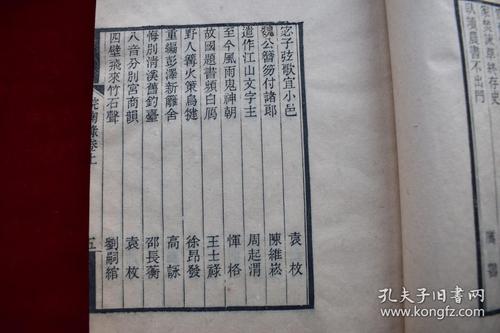 臥頭晨書不出門
宓子弦歌宜小邑 袁枚
魏公醫笏付諸郞 陳維崧
造作江山文字主 周起渭
至今風雨鬼神朝 惲格
故國題書頻白鴈 王士祿
野人籌火策烏犍 徐昂發
重編彭澤新辭舍 高詠
悔別淸溪舊釣臺 邵長蘅
八音分別宮商韻 袁枚
四壁飛來竹石聲 劉嗣綰
卷上
五
孔夫子旧书网
www.kongfz.com